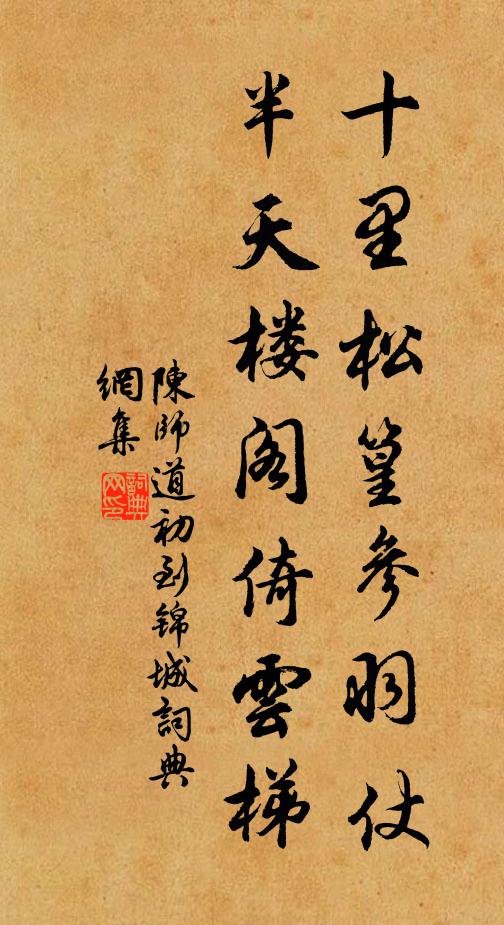 十里松篁參羽仗
半天楼阁倚雲梯
陳師道初到錦城詞典
網集
詞典
网印